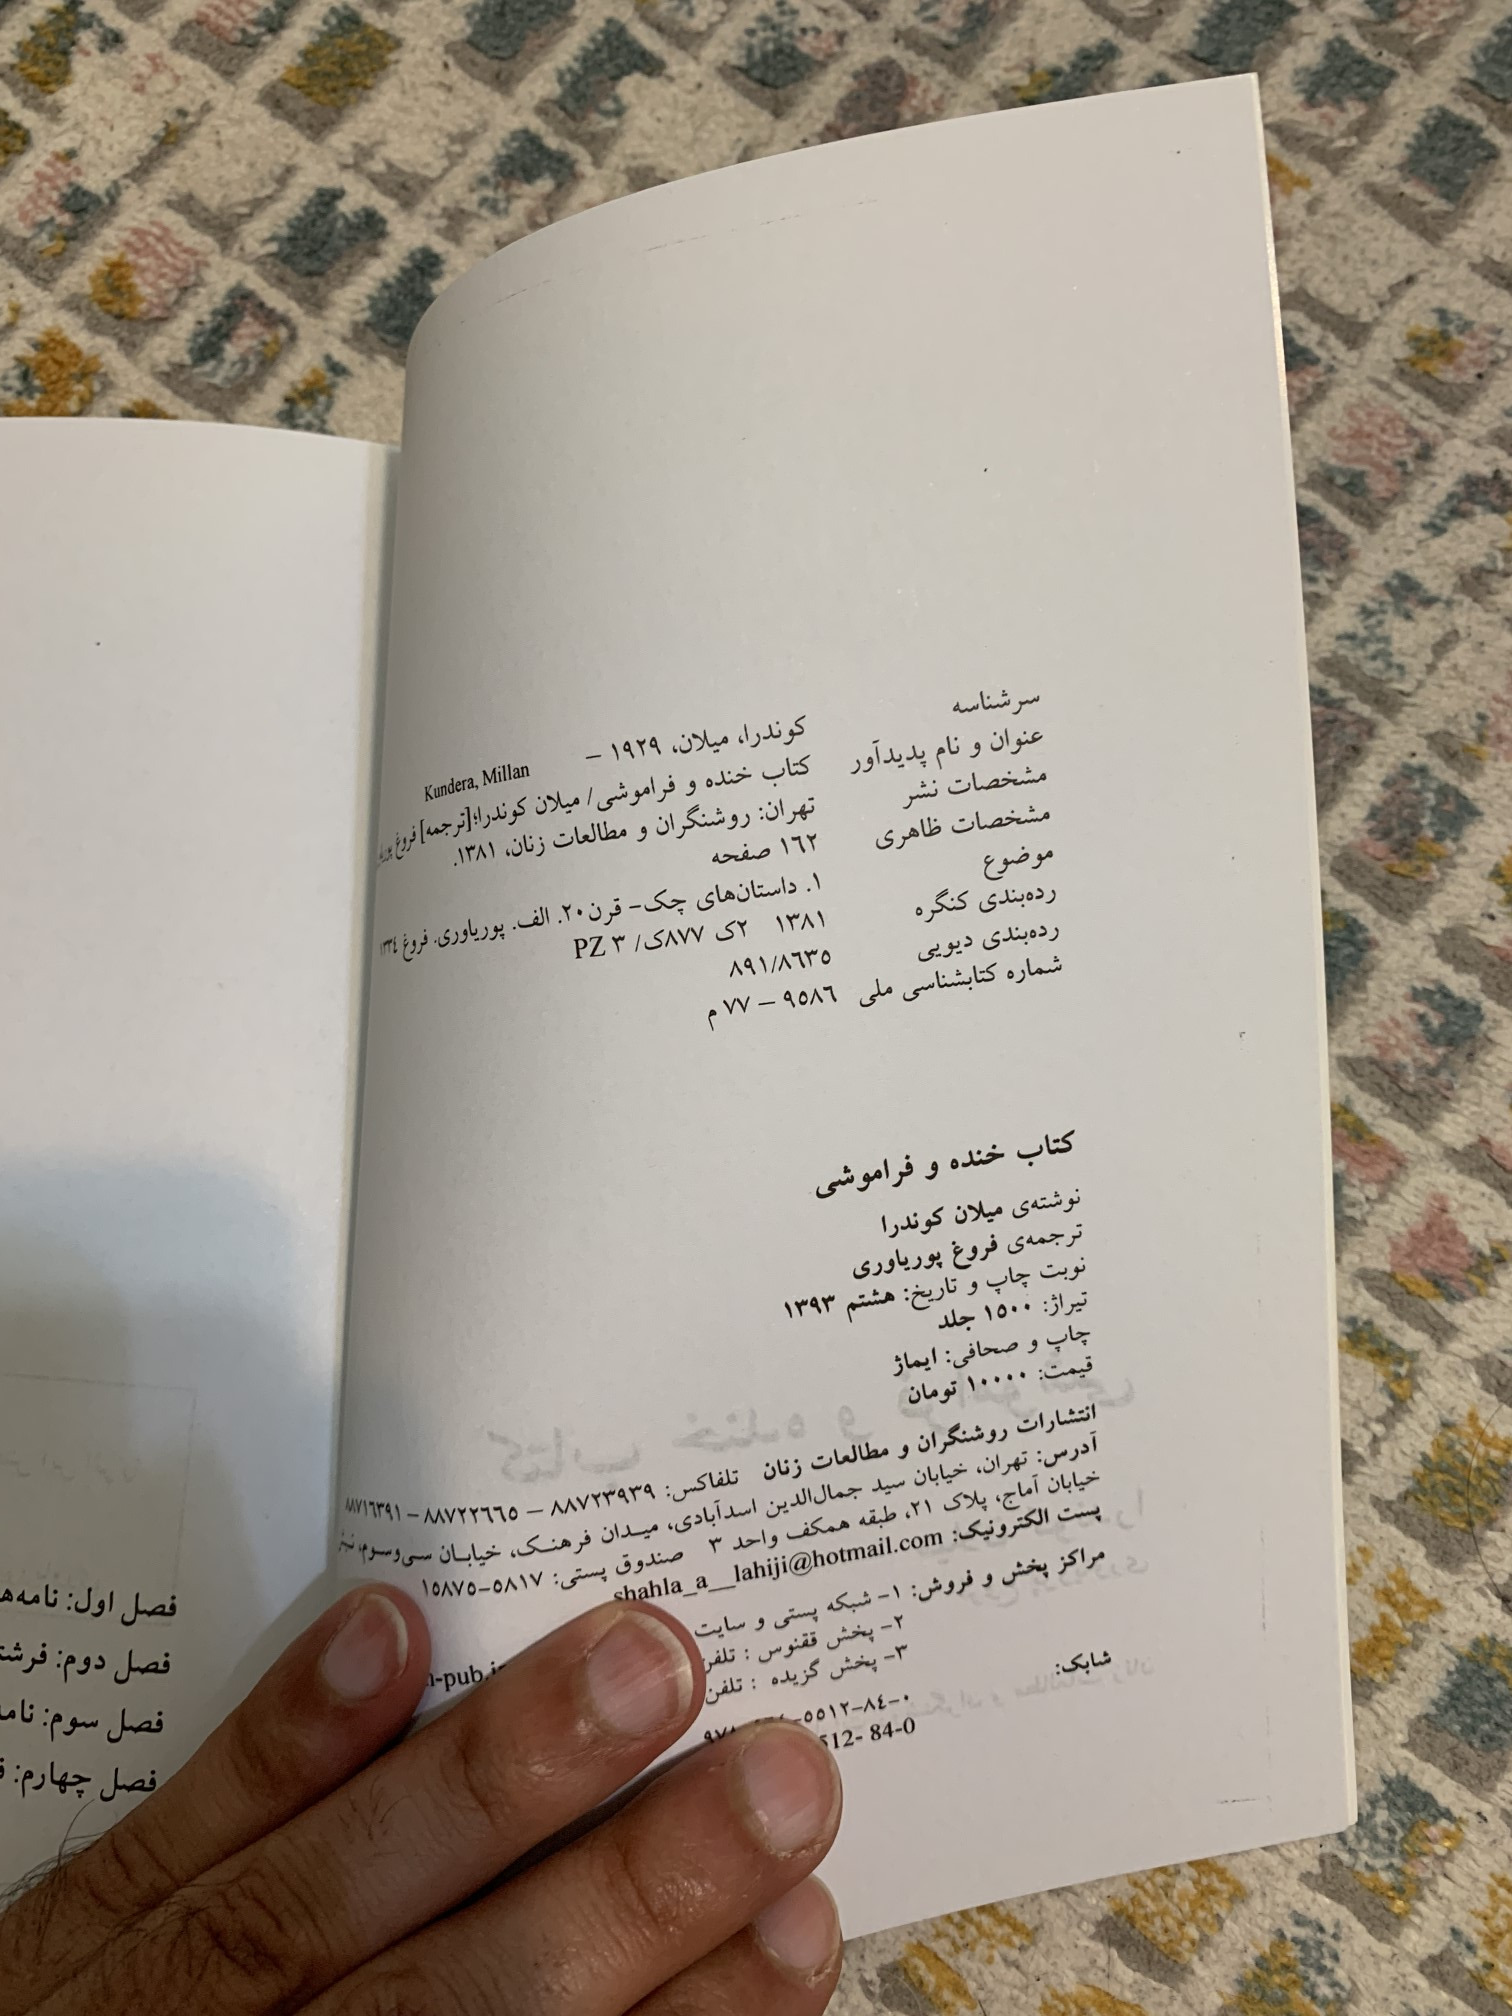 سرشناسه کوندرا، میلان، ۱۹۲۹ – Kundera, Millan
عنوان و نام پدیدآور کتاب خنده و فراموشی/ میلان کوندرا؛[ترجمه] فروغ
مشخصات نشر تهران: روشنگران و مطالعات زنان، ۱۳۸۱.
مشخصات ظاهری ۱۶۲ صفحه
موضوع ۱. داستان‌های چک- قرن۲۰. الف. پوریاوری. فروغ ۱۳۳۴
رده‌بندی کنگره ۱۳۸۱ ۲ک ۸۷۷ک/ PZ ۳
رده‌بندی دیویی ۸۹۱/۸۶۳۵
شماره کتابشناسی ملی ۹۵۸۶ – ۷۷ م
کتاب خنده و فراموشی
نوشته‌ی میلان کوندرا
ترجمه‌ی فروغ پوریاوری
نوبت چاپ و تاریخ: هشتم ۱۳۹۳
تیراژ: ۱۵۰۰ جلد
چاپ و صحافی: ایماژ
قیمت: ۱۰۰۰۰ تومان
انتشارات روشنگران و مطالعات زنان تلفاکس: ۸۸۷۲۳۹۳۹ – ۸۸۷۲۲۶۶۵ – ۸۸۷۱۶۳۹۱
آدرس: تهران، خیابان سید جمال‌الدین اسدآبادی، میـدان فرهنـک، خیابـان سـی‌وسـوم،
خیابان آماج، پلاک ۲۱، طبقه همکف واحد ۳ صندوق پستی: ۵۸۱۷-۱۵۸۷۵
پست الکترونیک: shahla_a__lahiji@hotmail.com
مراکز پخش و فروش: ۱- شبکه پستی و سایت
۲- پخش ققنوس : تلفن
۳- پخش گزیده : تلفن
شابک: ۵۵۱۲-۸۴-۰
512- 84-0
فصل اول:
فصل دوم:
فصل سوم:
فصل چهارم: